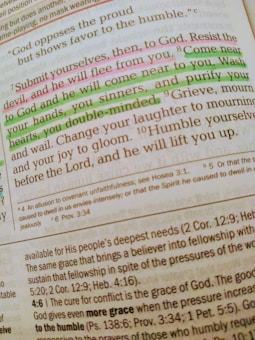 "God opposes the proud
but shows favor to the humble."
7Submit yourselves, then, to God. Resist the
devil, and he will flee from you. 8Come near
to God and he will come near to you. Wash
your hands, you sinners, and purify your
hearts, you double-minded. 9Grieve, mourn
and wail. Change your laughter to mourning
and your joy to gloom. 10Humble yourselves
before the Lord, and he will lift you up.
a 4 An allusion to covenant unfaithfulness; see Hosea 3:1. b 5 Or that the
caused to dwell in us envies intensely; or that the Spirit he caused to dwell in
jealously c 6 Prov. 3:34
available for His people's deepest needs (2 Cor. 12:9; Heb
The same grace that brings a believer into fellowship with
sustain that fellowship in spite of the pressures of the wor
5:20; 2 Cor. 12:9; Heb. 4:16).
4:6 | The cure for conflict is the grace of God. The good
God gives even more grace when the pressure increas
to the humble (Ps. 138:6; Prov. 3:34; 1 Pet. 5:5). Go
prayers of those who humbly reque